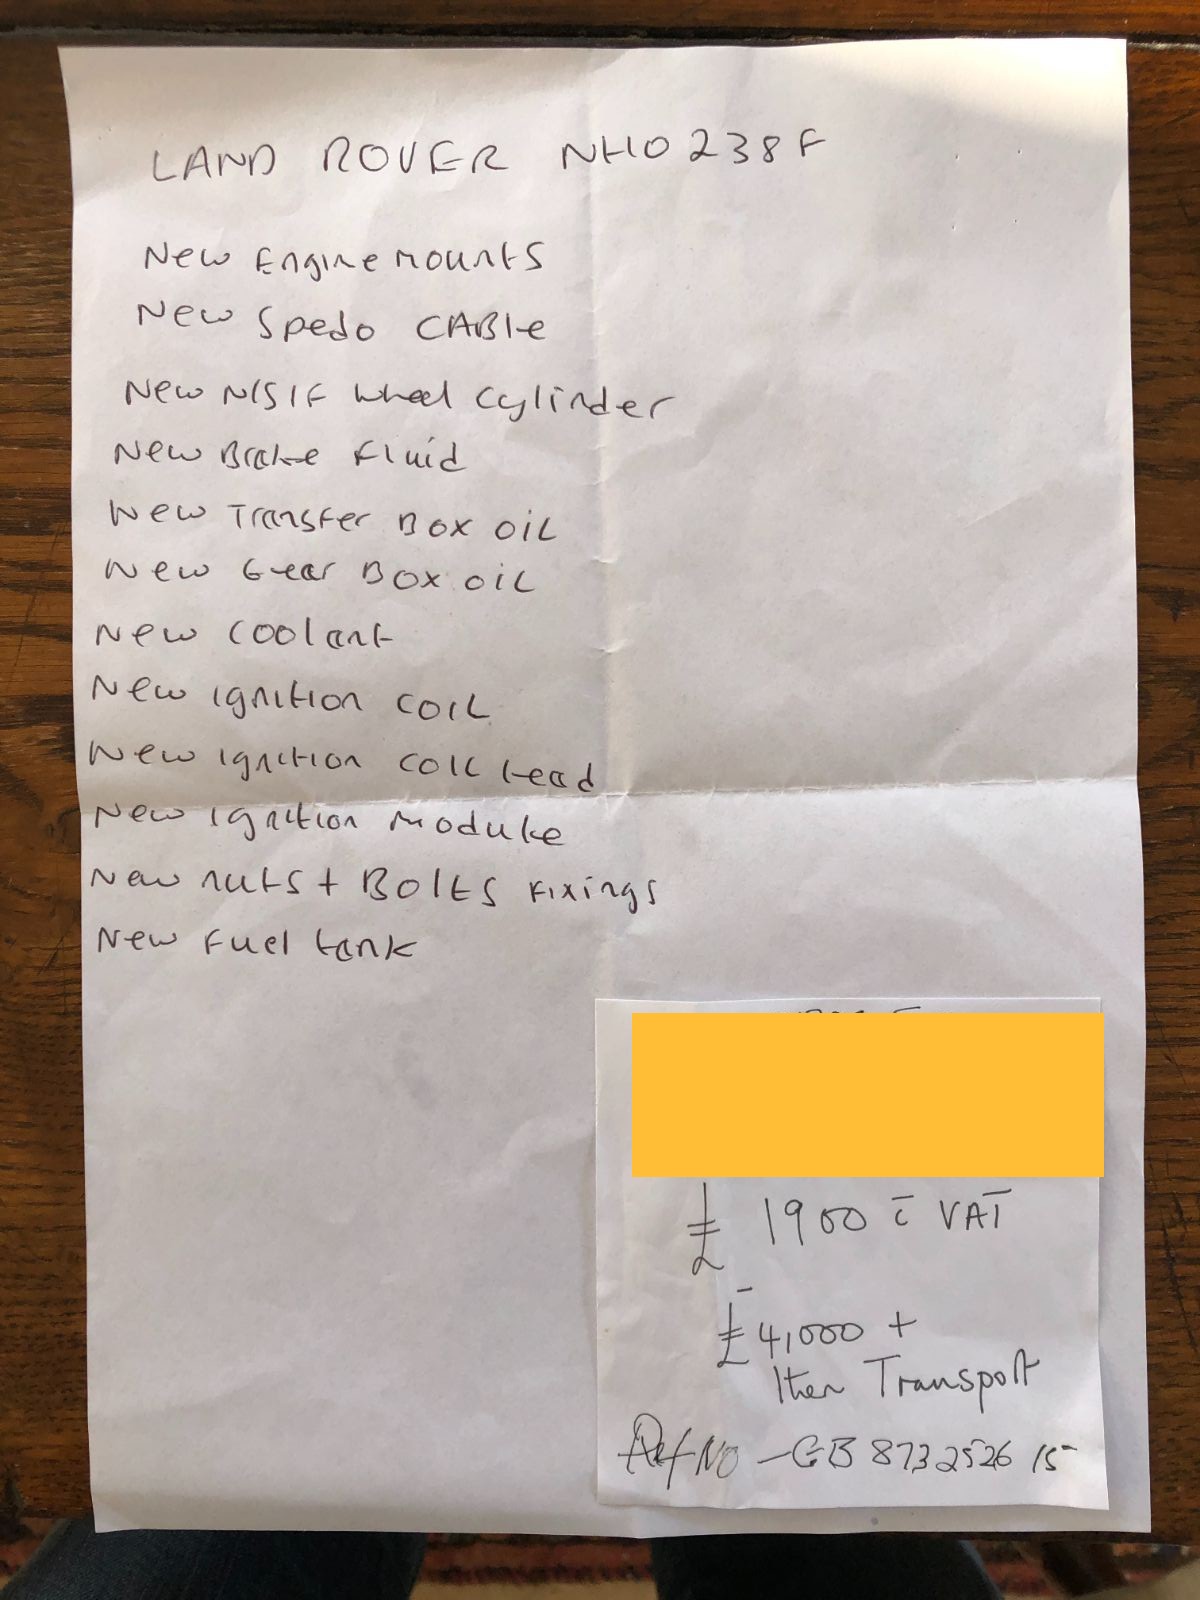 LAND ROVER NHO 238F
New Engine mounts
New Spedo CABle
New N/S/F wheel Cylinder
New Brake Fluid
New Transfer Box oil
New Gear Box oil
New Coolant
New ignition COIL
New ignition COIL Lead
New ignition module
New nuts + Bolts Fixings
New Fuel tank
£ 1900 c̄ VAT
£4,000 +
then Transport
Ref No - GB 8732526 15